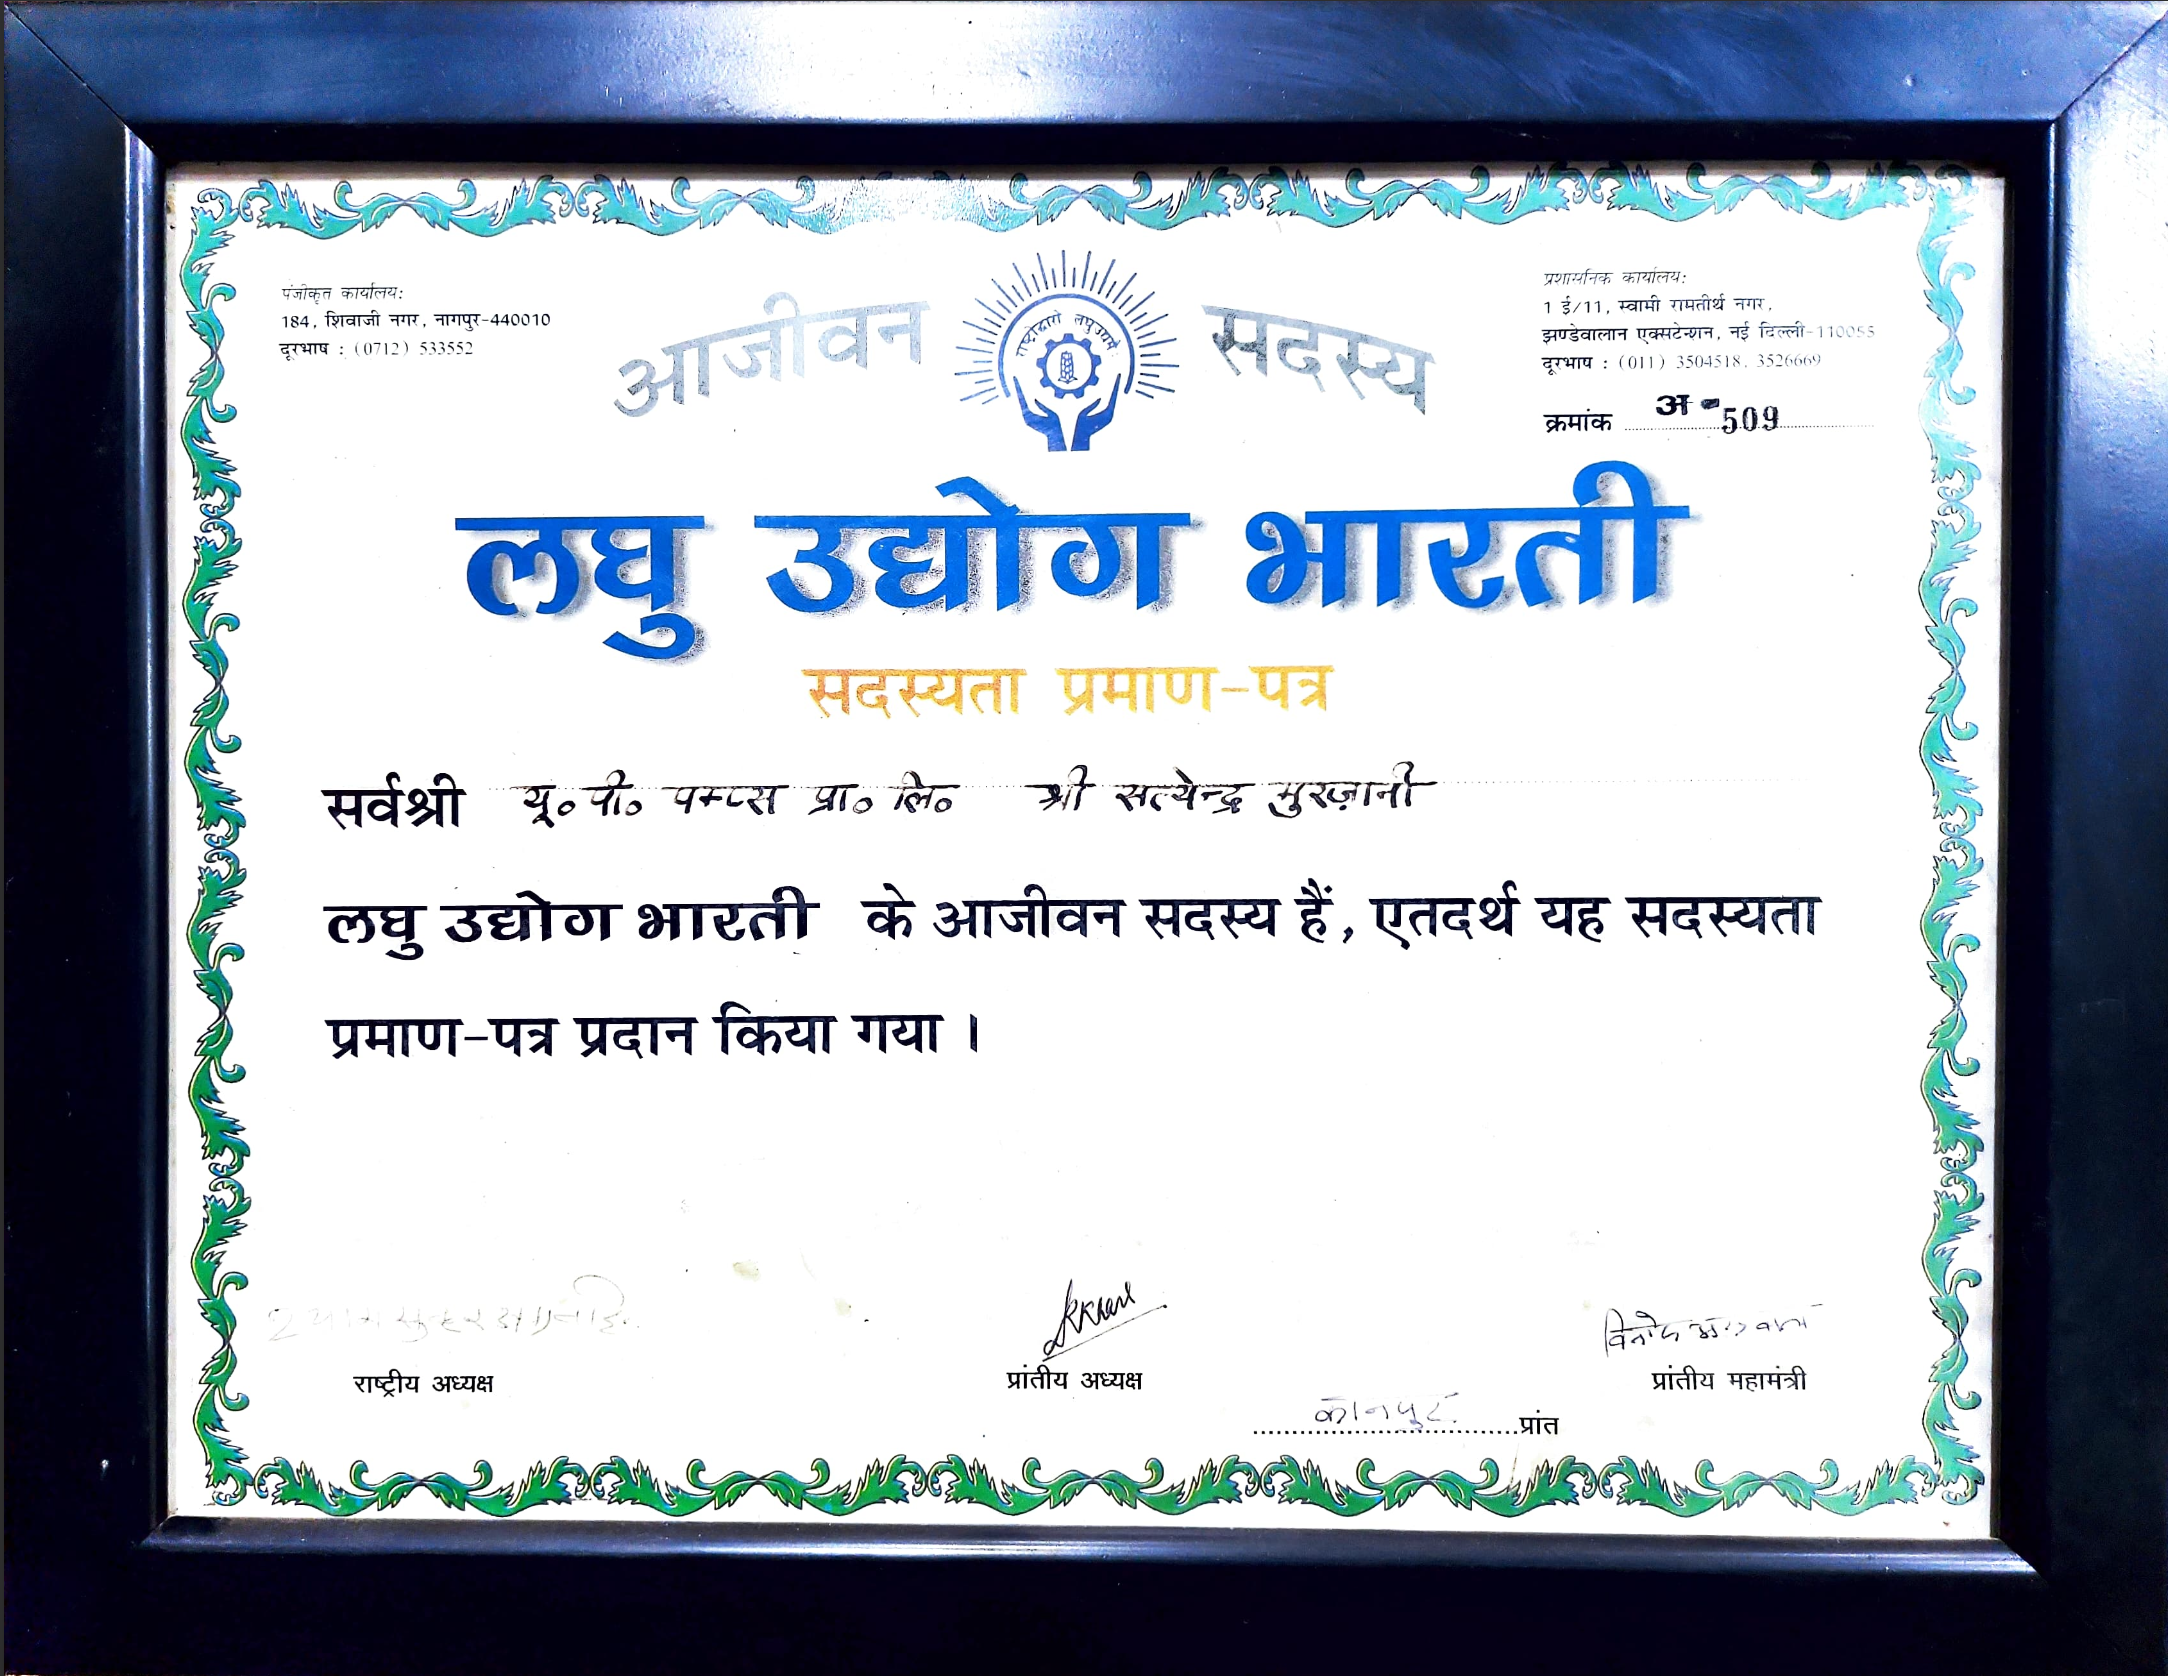 पंजीकृत कार्यालय:
184, शिवाजी नगर, नागपुर-440010
दूरभाष : (0712) 533552
प्रशासनिक कार्यालय:
1 ई/11, स्वामी रामतीर्थ नगर,
झण्डेवालान एक्सटेन्शन, नई दिल्ली-110055
दूरभाष : (011) 3504518, 3526669
क्रमांक अ-509
आजीवन सदस्य
लघु उद्योग भारती
सदस्यता प्रमाण-पत्र
सर्वश्री यू॰ पी॰ पम्प्स प्रा॰ लि॰ श्री सत्येन्द्र मुरज़ानी
लघु उद्योग भारती के आजीवन सदस्य हैं, एतदर्थ यह सदस्यता
प्रमाण-पत्र प्रदान किया गया ।
राष्ट्रीय अध्यक्ष
प्रांतीय अध्यक्ष
प्रांतीय महामंत्री
कानपुर प्रांत